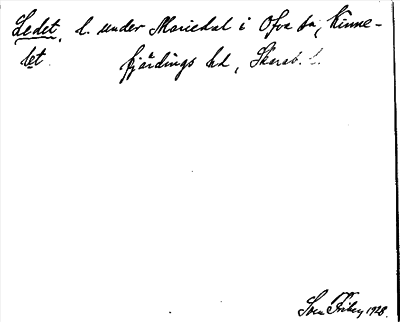 Ledet, l. under Mariedal i Ofva sn, Kinne-
let. fjärdings hd, Skarab. l.
Sven Friberg 1928.